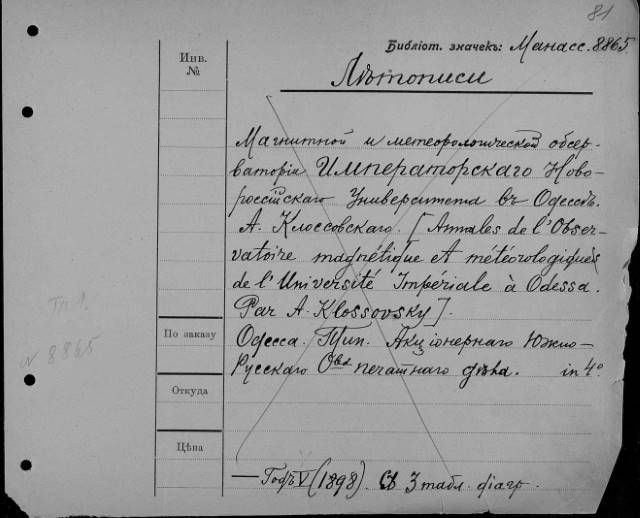 81
Библіот. значекъ: Манасс. 8865.
Инв.
№
Лѣтописи
Магнитной и метеорологической обсер-
ваторіи Императорскаго Ново-
россійскаго Университета въ Одессѣ.
А. Клоссовскаго. [Annales de l'Obser-
vatoire magnétique et météorologique
de l'Université Impériale à Odessa.
Par A. Klossovsky].
Тп 1.
N 8865
По заказу
Одесса. Тип. Акціонернаго Южно-
Русскаго Обва печатнаго дѣла. in 4°.
Откуда
Цѣна
— Годъ V (1898). Съ 3 табл. діагр.